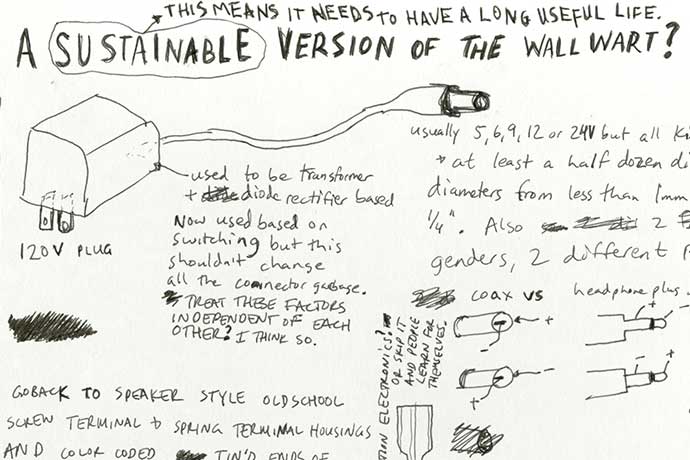 THIS MEANS IT NEEDS TO HAVE A LONG USEFUL LIFE.
A SUSTAINABLE VERSION OF THE WALL WART?
120V PLUG
used to be transformer
+ diode rectifier based
Now used based on
switching but this
shouldn't change
all the connector garbage.
TREAT THESE FACTORS
INDEPENDENT OF EACH
OTHER? I THINK SO.
usually 5, 6, 9, 12 or 24V but all
* at least a half dozen
diameters from less than 1mm
1/4". Also 2
genders, 2 different
coax vs headphone plug
+
-
-
+
+
-
+
-
ELECTRONICS?
OR SKIP IT
AND PEOPLE
LEARN FOR
THEMSELVES.
GO BACK TO SPEAKER STYLE OLDSCHOOL
SCREW TERMINAL & SPRING TERMINAL HOUSINGS
AND COLOR CODED TIN'D ENDS OF